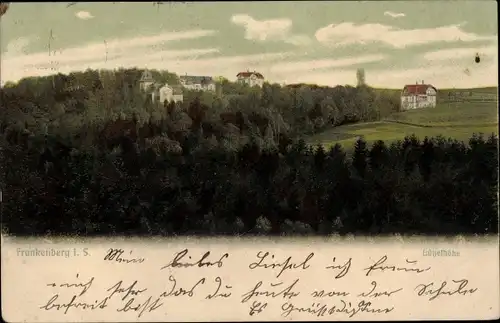 Frankenberg i. S.
Lützelhöhe
Mein liebes Liesel ich freu
mich sehr das du heute von der Schule
befreit bist Es grüsst dich